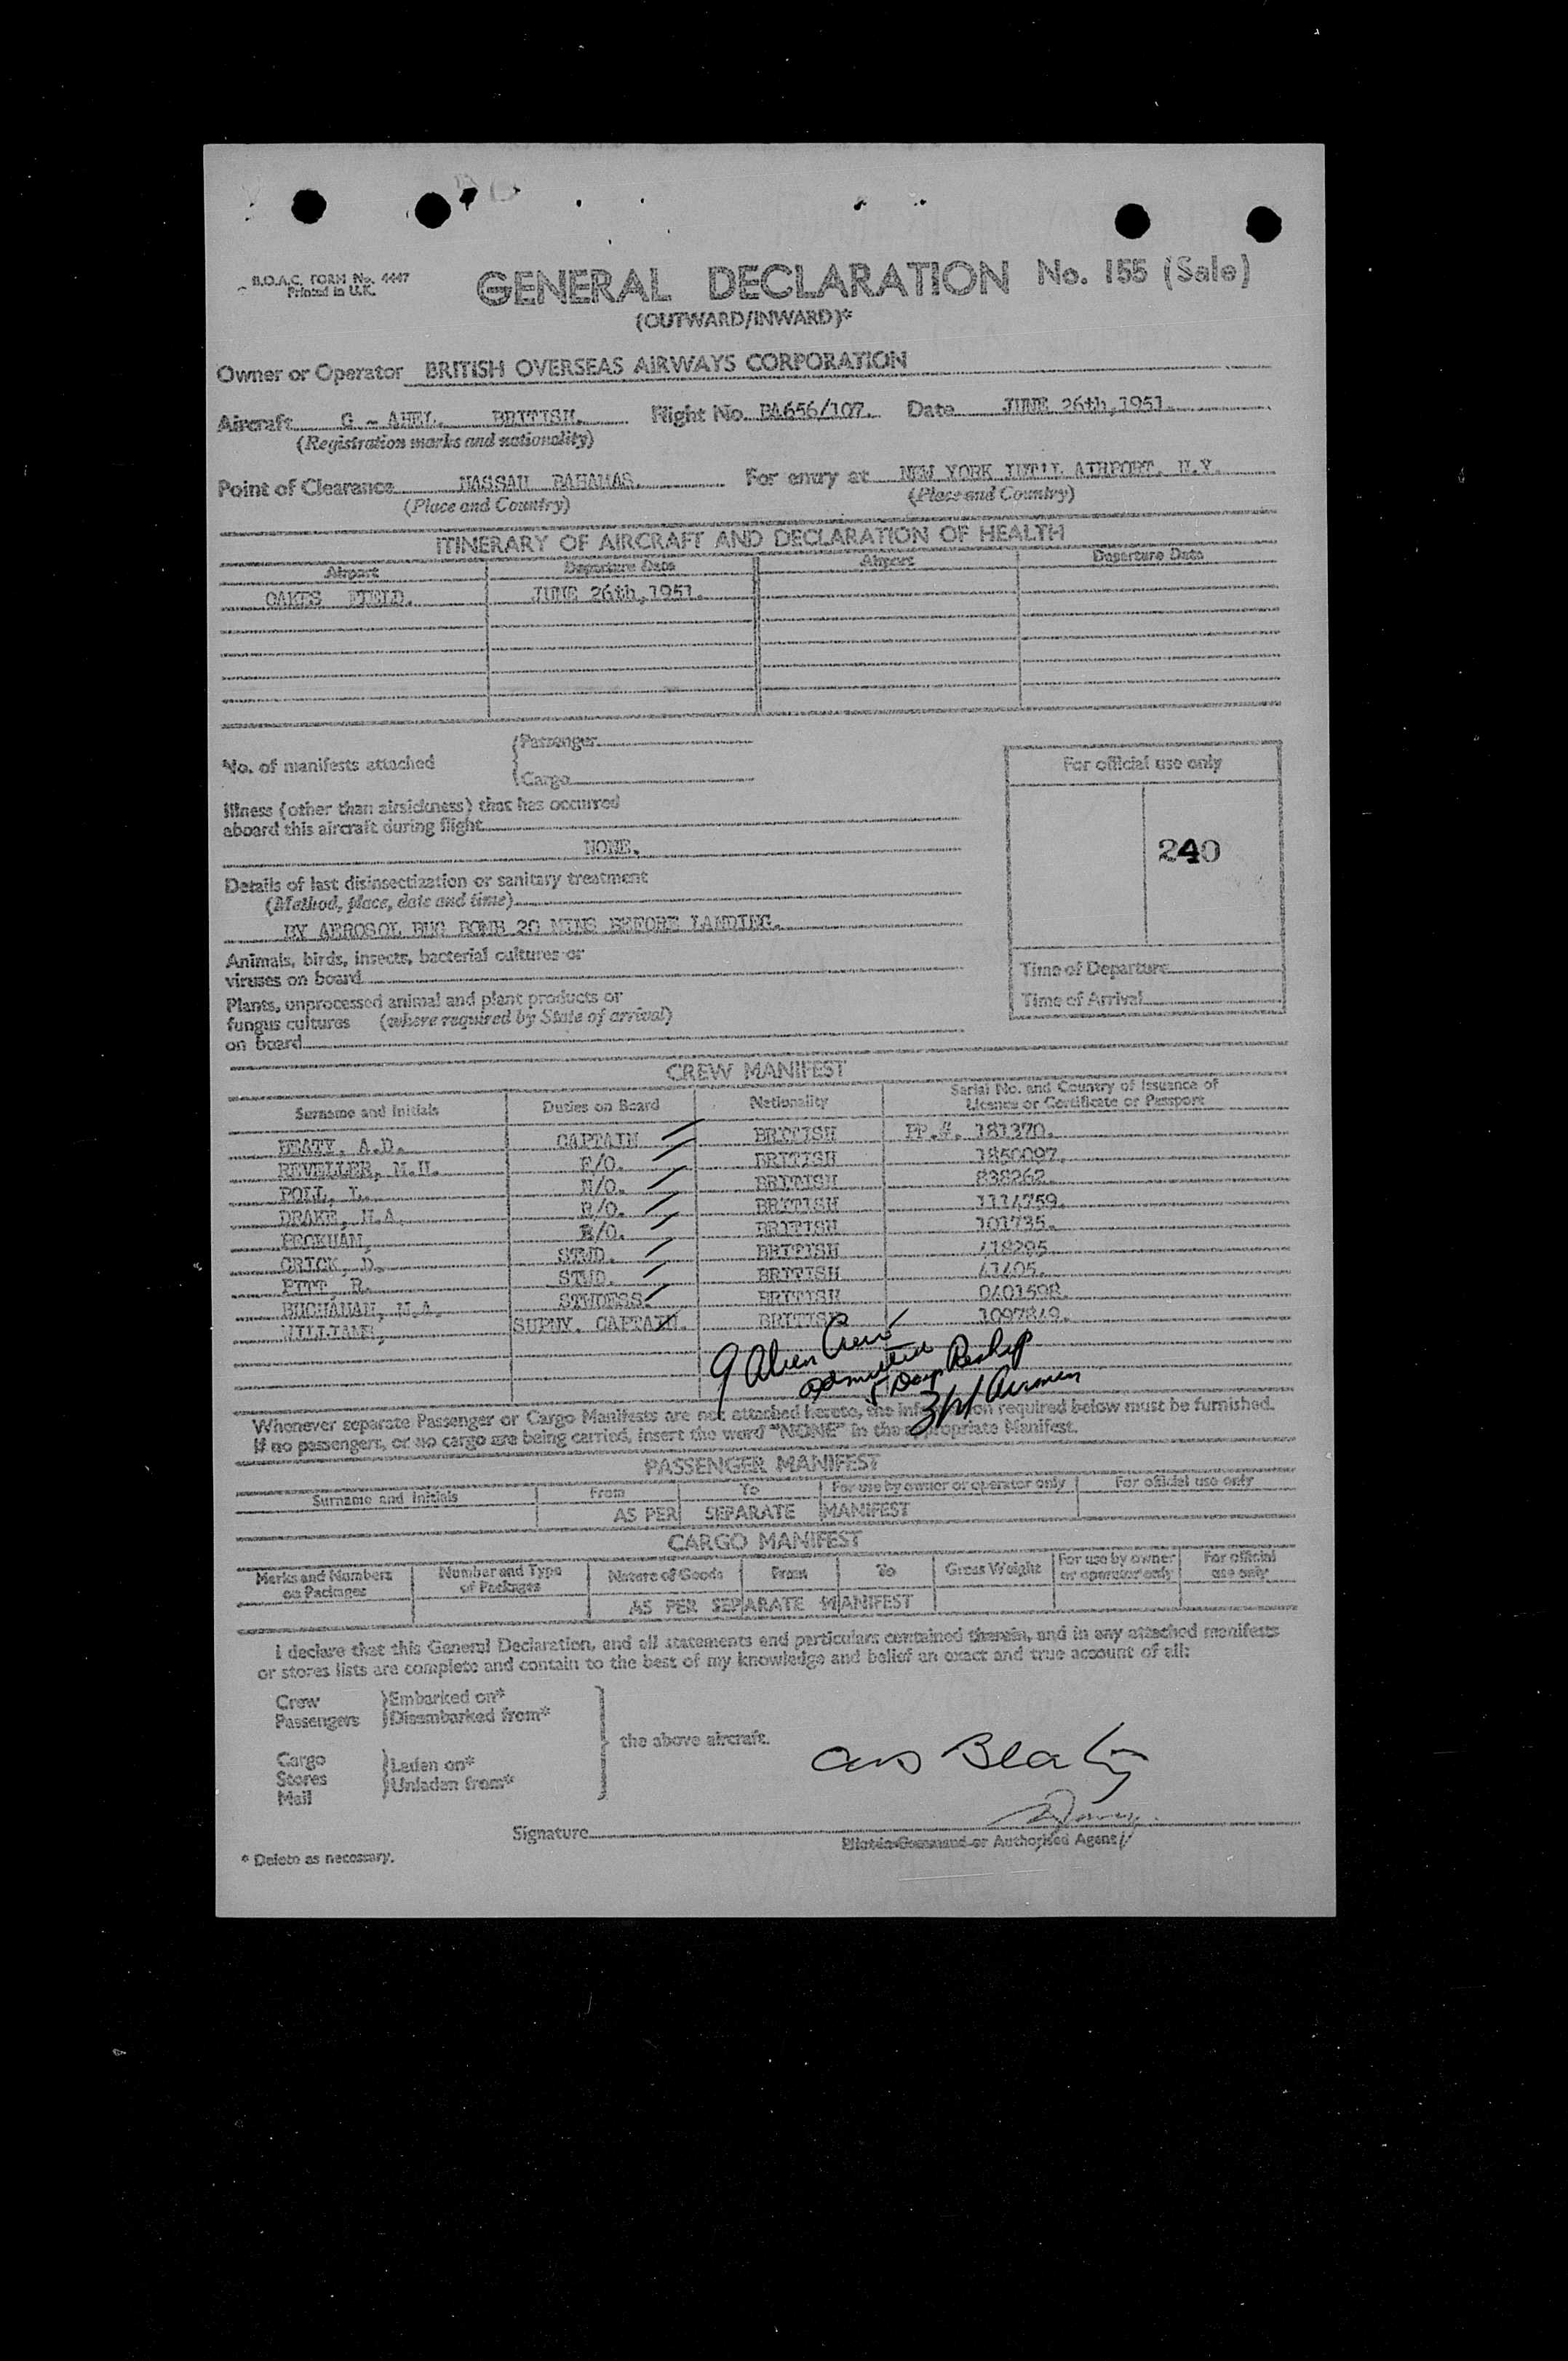 B.O.A.C. FORM No. 4447
Printed in U.K.
GENERAL DECLARATION No. 155 (Sale)
(OUTWARD/INWARD)*
Owner or Operator BRITISH OVERSEAS AIRWAYS CORPORATION
Aircraft G - AHEL. BRITISH. Flight No. BA656/107. Date JUNE 26th,1951.
(Registration marks and nationality)
Point of Clearance NASSAU BAHAMAS. For entry at NEW YORK INT'L AIRPORT, N.Y.
(Place and Country) (Place and Country)
ITINERARY OF AIRCRAFT AND DECLARATION OF HEALTH
Airport Departure Date Airport Departure Date
OAKES FIELD. JUNE 26th,1951.
No. of manifests attached {Passenger
{Cargo
For official use only
Illness (other than airsickness) that has occurred
aboard this aircraft during flight
NONE.
240
Details of last disinsectization or sanitary treatment
(Method, place, date and time)
BY AEROSOL BUG BOMB 20 MINS BEFORE LANDING.
Animals, birds, insects, bacterial cultures or
viruses on board
Time of Departure
Plants, unprocessed animal and plant products or
fungus cultures (where required by State of arrival)
on board
Time of Arrival
CREW MANIFEST
Surname and Initials Duties on Board Nationality Serial No. and Country of Issuance of
Licence or Certificate or Passport
BEATY, A.D. CAPTAIN BRITISH PP.#. 181370.
REVELLER, M.H. F/O. BRITISH 1850097.
POLL, L. N/O. BRITISH 838262.
DRAKE, H.A. R/O. BRITISH 1114759.
PECKHAM, E/O. BRITISH 101735.
CRICK, D. STWD. BRITISH 418295
PITT, R. STWD. BRITISH 41405.
BUCHANAN, M.A. STWDESS. BRITISH 0401598.
WILLIAMS, SUPNY. CAPTAIN. BRITISH 1097849.
9 Alien Crew
admitted
5 Days Reship
3(5) Airmen
Whenever separate Passenger or Cargo Manifests are not attached hereto, the information required below must be furnished.
If no passengers, or no cargo are being carried, insert the word "NONE" in the appropriate Manifest.
PASSENGER MANIFEST
Surname and Initials From To For use by owner or operator only For official use only
AS PER SEPARATE MANIFEST
CARGO MANIFEST
Marks and Numbers on Packages Number and Type of Packages Nature of Goods From To Gross Weight For use by owner or operator only For official use only
AS PER SEPARATE MANIFEST
I declare that this General Declaration, and all statements and particulars contained therein, and in any attached manifests
or stores lists are complete and contain to the best of my knowledge and belief an exact and true account of all:
Crew }Embarked on*
Passengers }Disembarked from*
the above aircraft.
Cargo }Laden on*
Stores }Unladen from*
Mail
AD Beaty
Signature
Pilot-in-Command or Authorised Agent
* Delete as necessary.